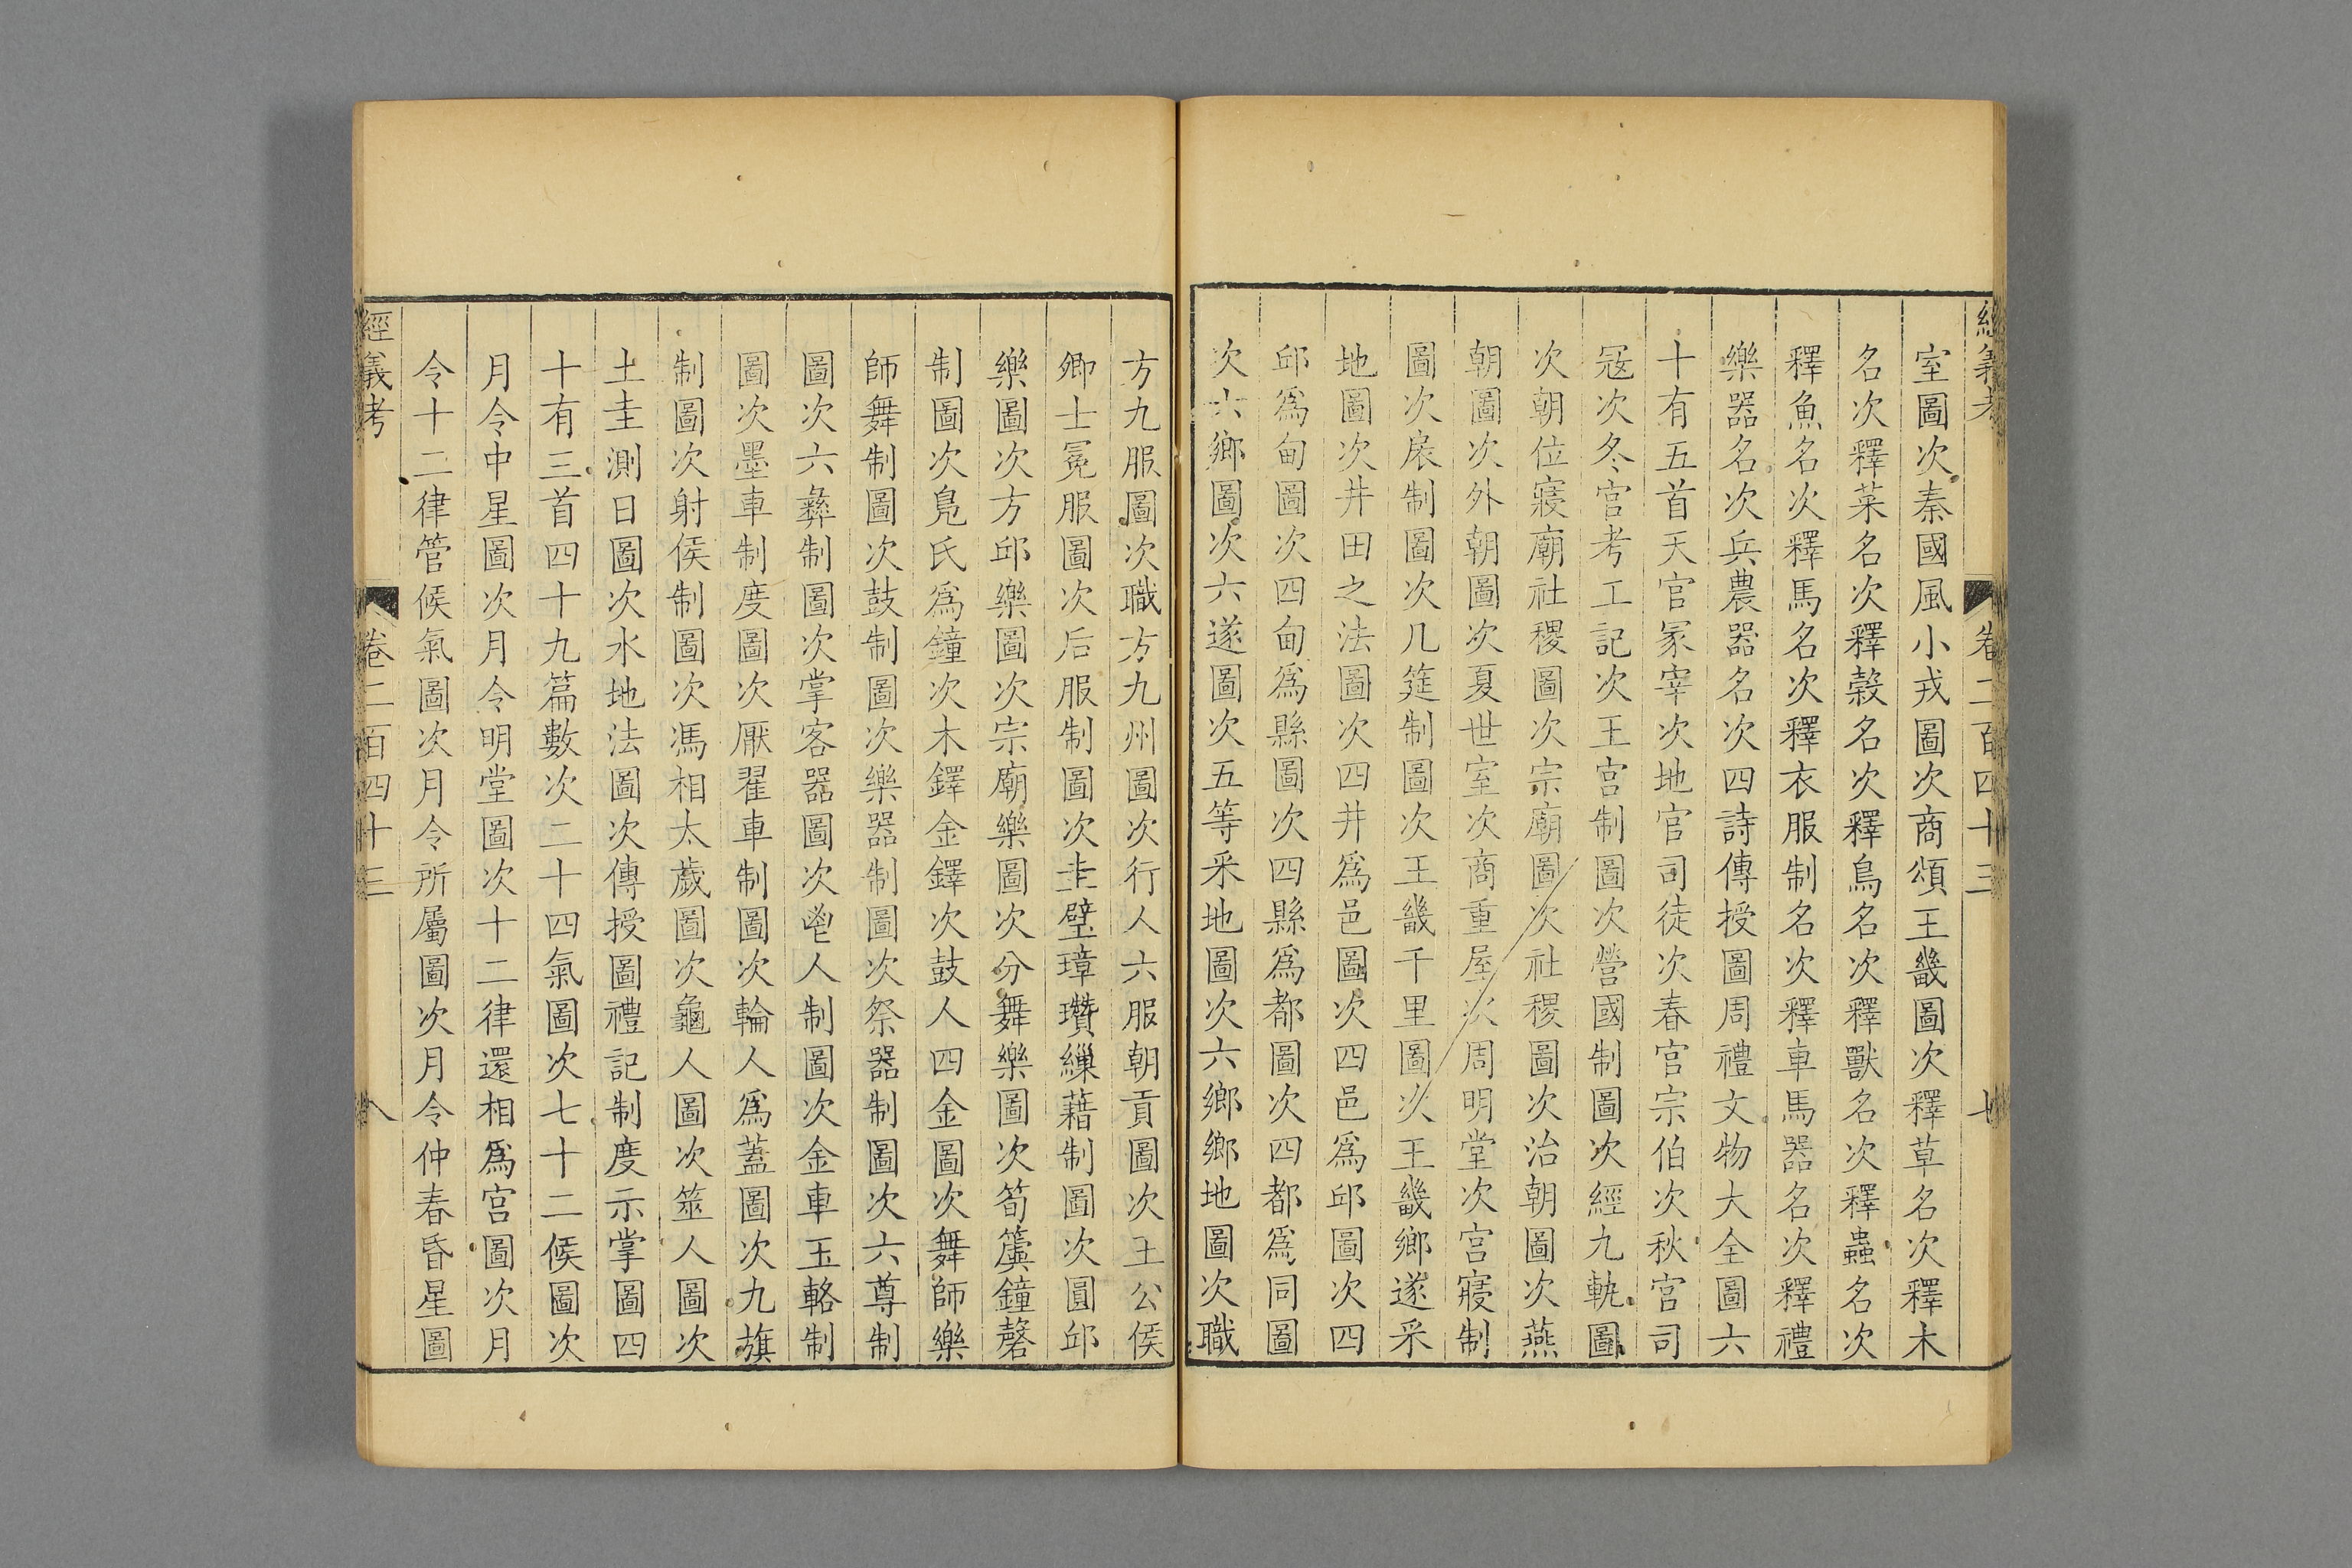 經義考 卷二百四十三 七
室圖次秦國風小戎圖次商頌王畿圖次釋草名次釋木
名次釋菜名次釋榖名次釋鳥名次釋獸名次釋蟲名次
釋魚名次釋馬名次釋衣服制名次釋車馬器名次釋禮
樂器名次兵農器名次四詩傳授圖周禮文物大全圖六
十有五首天官冢宰次地官司徒次春官宗伯次秋官司
冦次冬官考工記次王宫制圖次營國制圖次經九軌圖
次朝位寢廟社稷圖次宗廟圖次社稷圖次治朝圖次燕
朝圖次外朝圖次夏世室次商重屋次周明堂次宫寢制
圖次扆制圖次几筵制圖次王畿千里圖次王畿鄉遂采
地圖次井田之法圖次四井爲邑圖次四邑爲邱圖次四
邱爲甸圖次四甸爲縣圖次四縣爲都圖次四都爲同圖
次六鄉圖次六遂圖次五等采地圖次六鄉鄉地圖次職
方九服圖次職方九州圖次行人六服朝貢圖次王公侯
卿士冕服圖次后服制圖次圭璧璋瓚繅藉制圖次圓邱
樂圖次方邱樂圖次宗廟樂圖次分舞樂圖次筍簴鐘磬
制圖次鳬氏爲鐘次木鐸金鐸次鼓人四金圖次舞師樂
師舞制圖次鼓制圖次樂器制圖次祭器制圖次六尊制
圖次六彝制圖次掌客器圖次鬯人制圖次金車玉輅制
圖次墨車制度圖次厭翟車制圖次輪人爲蓋圖次九旗
制圖次射侯制圖次馮相太歲圖次龜人圖次筮人圖次
土圭測日圖次水地法圖次傳授圖禮記制度示掌圖四
十有三首四十九篇數次二十四氣圖次七十二候圖次
月令中星圖次月令明堂圖次十二律還相爲宫圖次月
令十二律管候氣圖次月令所屬圖次月令仲春昏星圖
經義考 卷二百四十三 八